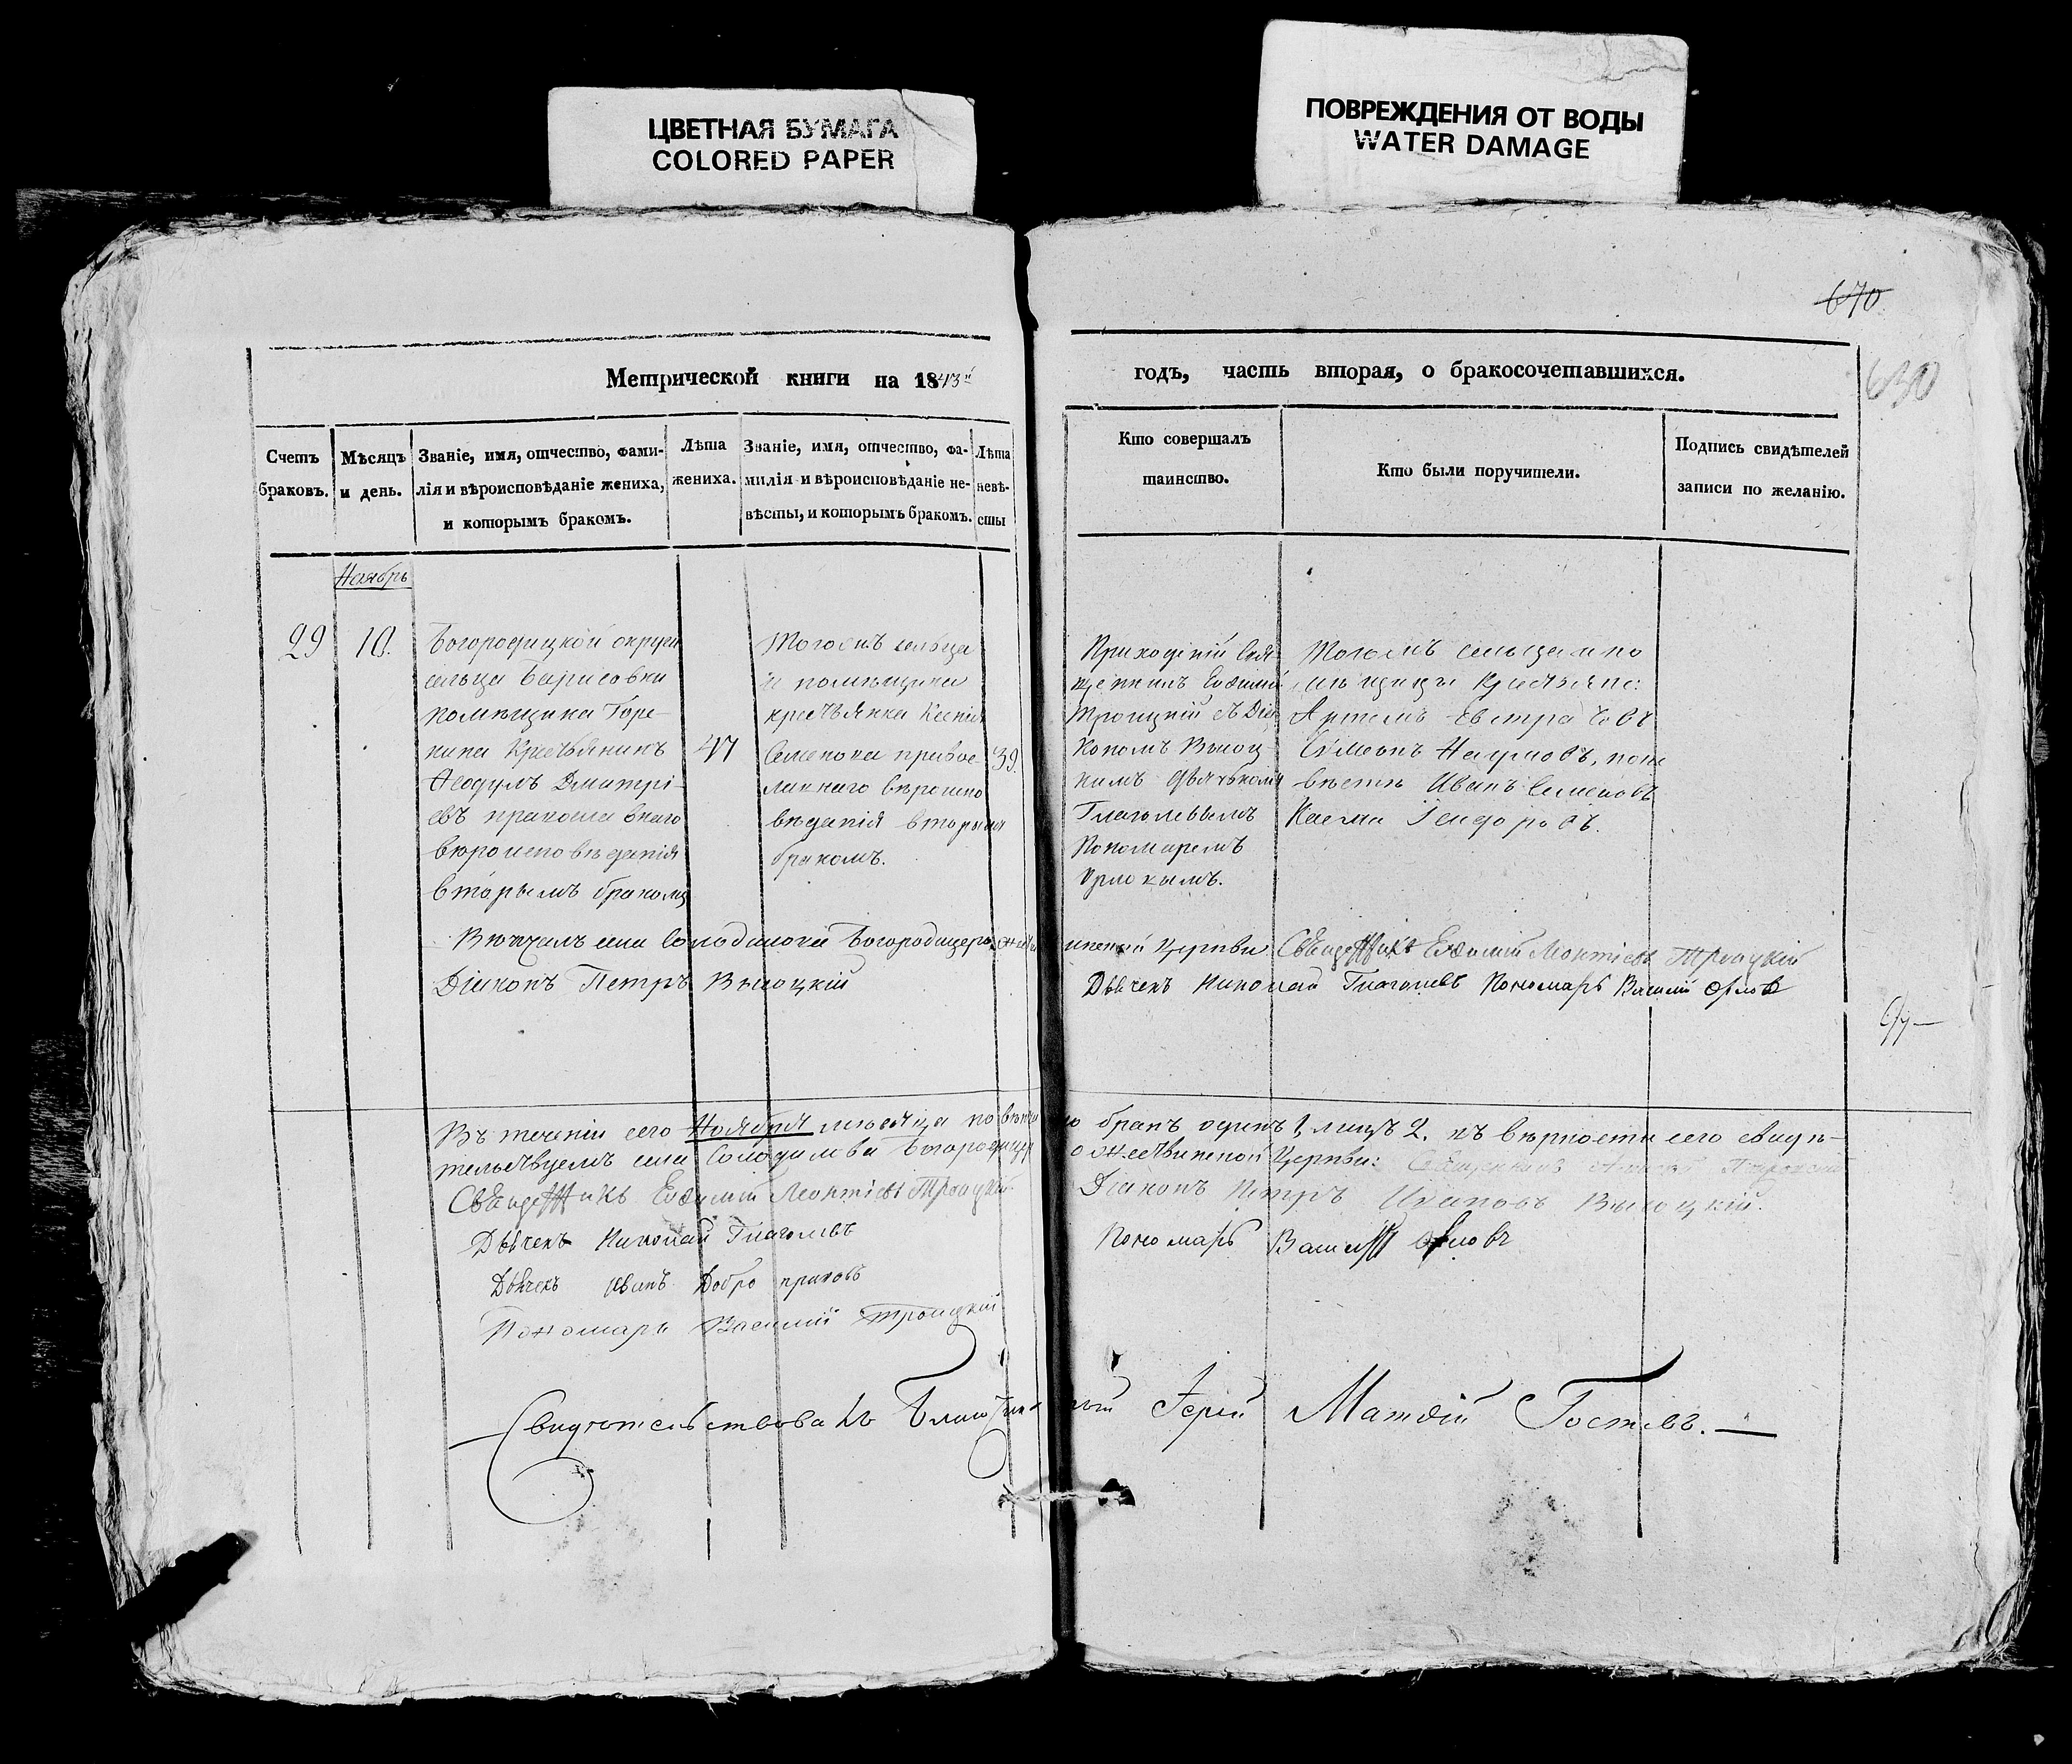 ЦВЕТНАЯ БУМАГА
COLORED PAPER
ПОВРЕЖДЕНИЯ ОТ ВОДЫ
WATER DAMAGE
670
630
Метрической книги на 1843й
годъ, часть вторая, о бракосочетавшихся.
Счетъ
браковъ.
Мѣсяцъ
и день.
Званіе, имя, отчество, фами-
лія и вѣроисповѣданіе жениха,
и которымъ бракомъ.
Лѣта
жениха.
Званіе, имя, отчество, фа-
милія и вѣроисповѣданіе не-
вѣсты, и которымъ бракомъ.
Лѣта
невѣ-
сты
Кто совершалъ
таинство.
Кто были поручители.
Подпись свидѣтелей
записи по желанію.
Ноябрь
29
10.
Богородицкой округи
сельца Борисовки
помѣщика
крестьянинъ
Ѳеодулъ Дмитрі-
евъ православнаго
вѣроисповѣданія
вторымъ бракомъ
47
Тогожъ сельца
и помѣщика
крестьянка Ксенія
Семенова правос
лавнаго вѣроиспо
вѣданія вторымъ
бракомъ.
39.
Приходскій Свя
щенникъ Евѳимій
Троицкій съ Діа
кономъ Высоц-
кимъ дьячкомъ
Глаголевымъ
Пономаремъ
Орловымъ.
Тогожъ сельца и по
мѣщицы крестьяне:
Артемъ Евстратовъ
Симеонъ Наумовъ, по не
вѣстѣ Иванъ Семеновъ
Косма
Вѣнчалъ села Солодилова Богородицерождест
венской Церкви Священникъ Евѳимій Леонтіевъ Троицкій
Діаконъ Петръ Высоцкій
Дьячекъ Николай Глаголевъ Пономарь Василій Орловъ
Въ теченіи сего Ноября мѣсяца повѣнча
но бракъ одинъ 1, лицъ 2. въ вѣрности сего свидѣ-
тельствуемъ села Солодилова Богородицер
ождественской Церкви: Священникъ
Священникъ Евѳимій Леонтіевъ Троицкій
Діаконъ Петръ Ивановъ Высоцкій.
Дьячекъ Николай Глаголевъ
Пономарь Василій Орловъ
Дьячекъ Иванъ Добронравовъ
Пономарь Василій Троицкій
Свидетельствовалъ Благочинный Іерей Матѳій Гостевъ.